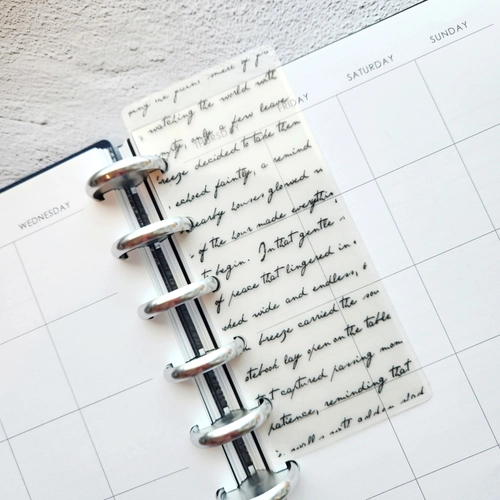 WEDNESDAY
THURSDAY
FRIDAY
SATURDAY
SUNDAY
watching the world with
only a few leaves
breeze decided to take them
echoed faintly, a remind
nearby houses glowed
of the hour made everythin
begin. In that gentle
of peace that lingered in
wide and endless,
breeze carried the
otebook lay open on the table
t captured passing mom
patience, reminding that